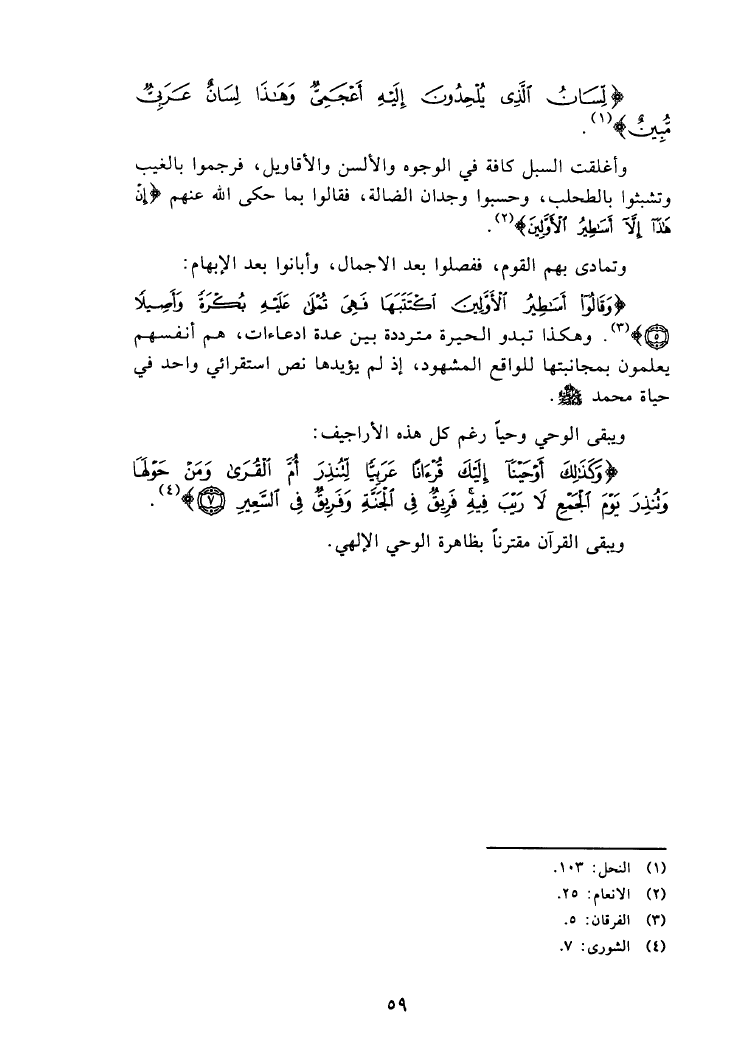 ﴿لِّسَانُ ٱلَّذِى يُلْحِدُونَ إِلَيْهِ أَعْجَمِىٌّ وَهَٰذَا لِسَانٌ عَرَبِىٌّ
مُّبِينٌ﴾(١).
وأغلقت السبل كافة في الوجوه والألسن والأقاويل، فرجموا بالغيب
وتشبثوا بالطحلب، وحسبوا وجدان الضالة، فقالوا بما حكى الله عنهم ﴿إِنْ
هَٰذَآ إِلَّآ أَسَٰطِيرُ ٱلْأَوَّلِينَ﴾(٢).
وتمادى بهم القوم، ففصلوا بعد الاجمال، وأبانوا بعد الإبهام:
﴿وَقَالُوٓا۟ أَسَٰطِيرُ ٱلْأَوَّلِينَ ٱكْتَتَبَهَا فَهِىَ تُمْلَىٰ عَلَيْهِ بُكْرَةً وَأَصِيلًا
٥﴾(٣). وهكذا تبدو الحيرة مترددة بين عدة ادعاءات، هم أنفسهم
يعلمون بمجانبتها للواقع المشهود، إذ لم يؤيدها نص استقرائي واحد في
حياة محمد ﷺ.
ويبقى الوحي وحياً رغم كل هذه الأراجيف:
﴿وَكَذَٰلِكَ أَوْحَيْنَآ إِلَيْكَ قُرْءَانًا عَرَبِيًّا لِّتُنذِرَ أُمَّ ٱلْقُرَىٰ وَمَنْ حَوْلَهَا
وَتُنذِرَ يَوْمَ ٱلْجَمْعِ لَا رَيْبَ فِيهِ ۚ فَرِيقٌ فِى ٱلْجَنَّةِ وَفَرِيقٌ فِى ٱلسَّعِيرِ ٧﴾(٤).
ويبقى القرآن مقترناً بظاهرة الوحي الإلهي.
(١) النحل: ١٠٣.
(٢) الانعام: ٢٥.
(٣) الفرقان: ٥.
(٤) الشورى: ٧.
٥٩